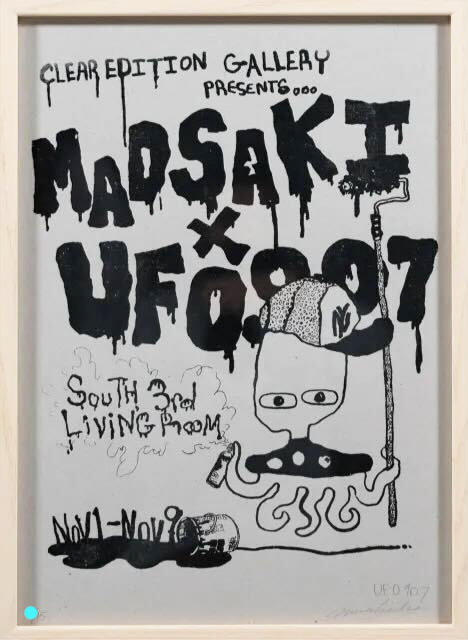 CLEAR EDITION GALLERY
PRESENTS...
MADSAKI
X
UFO907
NY
SOUTH 3rd
LIVING ROOM
NOV 1-NOV 9
UFO 907